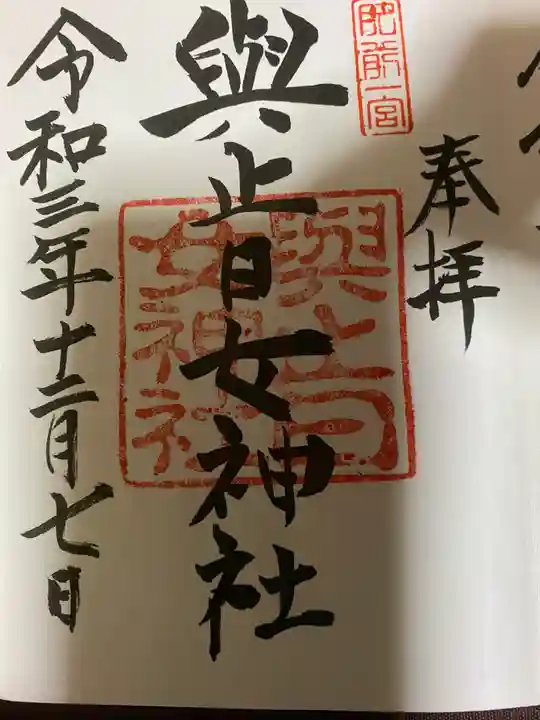 肥前一宮
奉拝
與止日女神社
與止日女神社
令和三年十二月七日